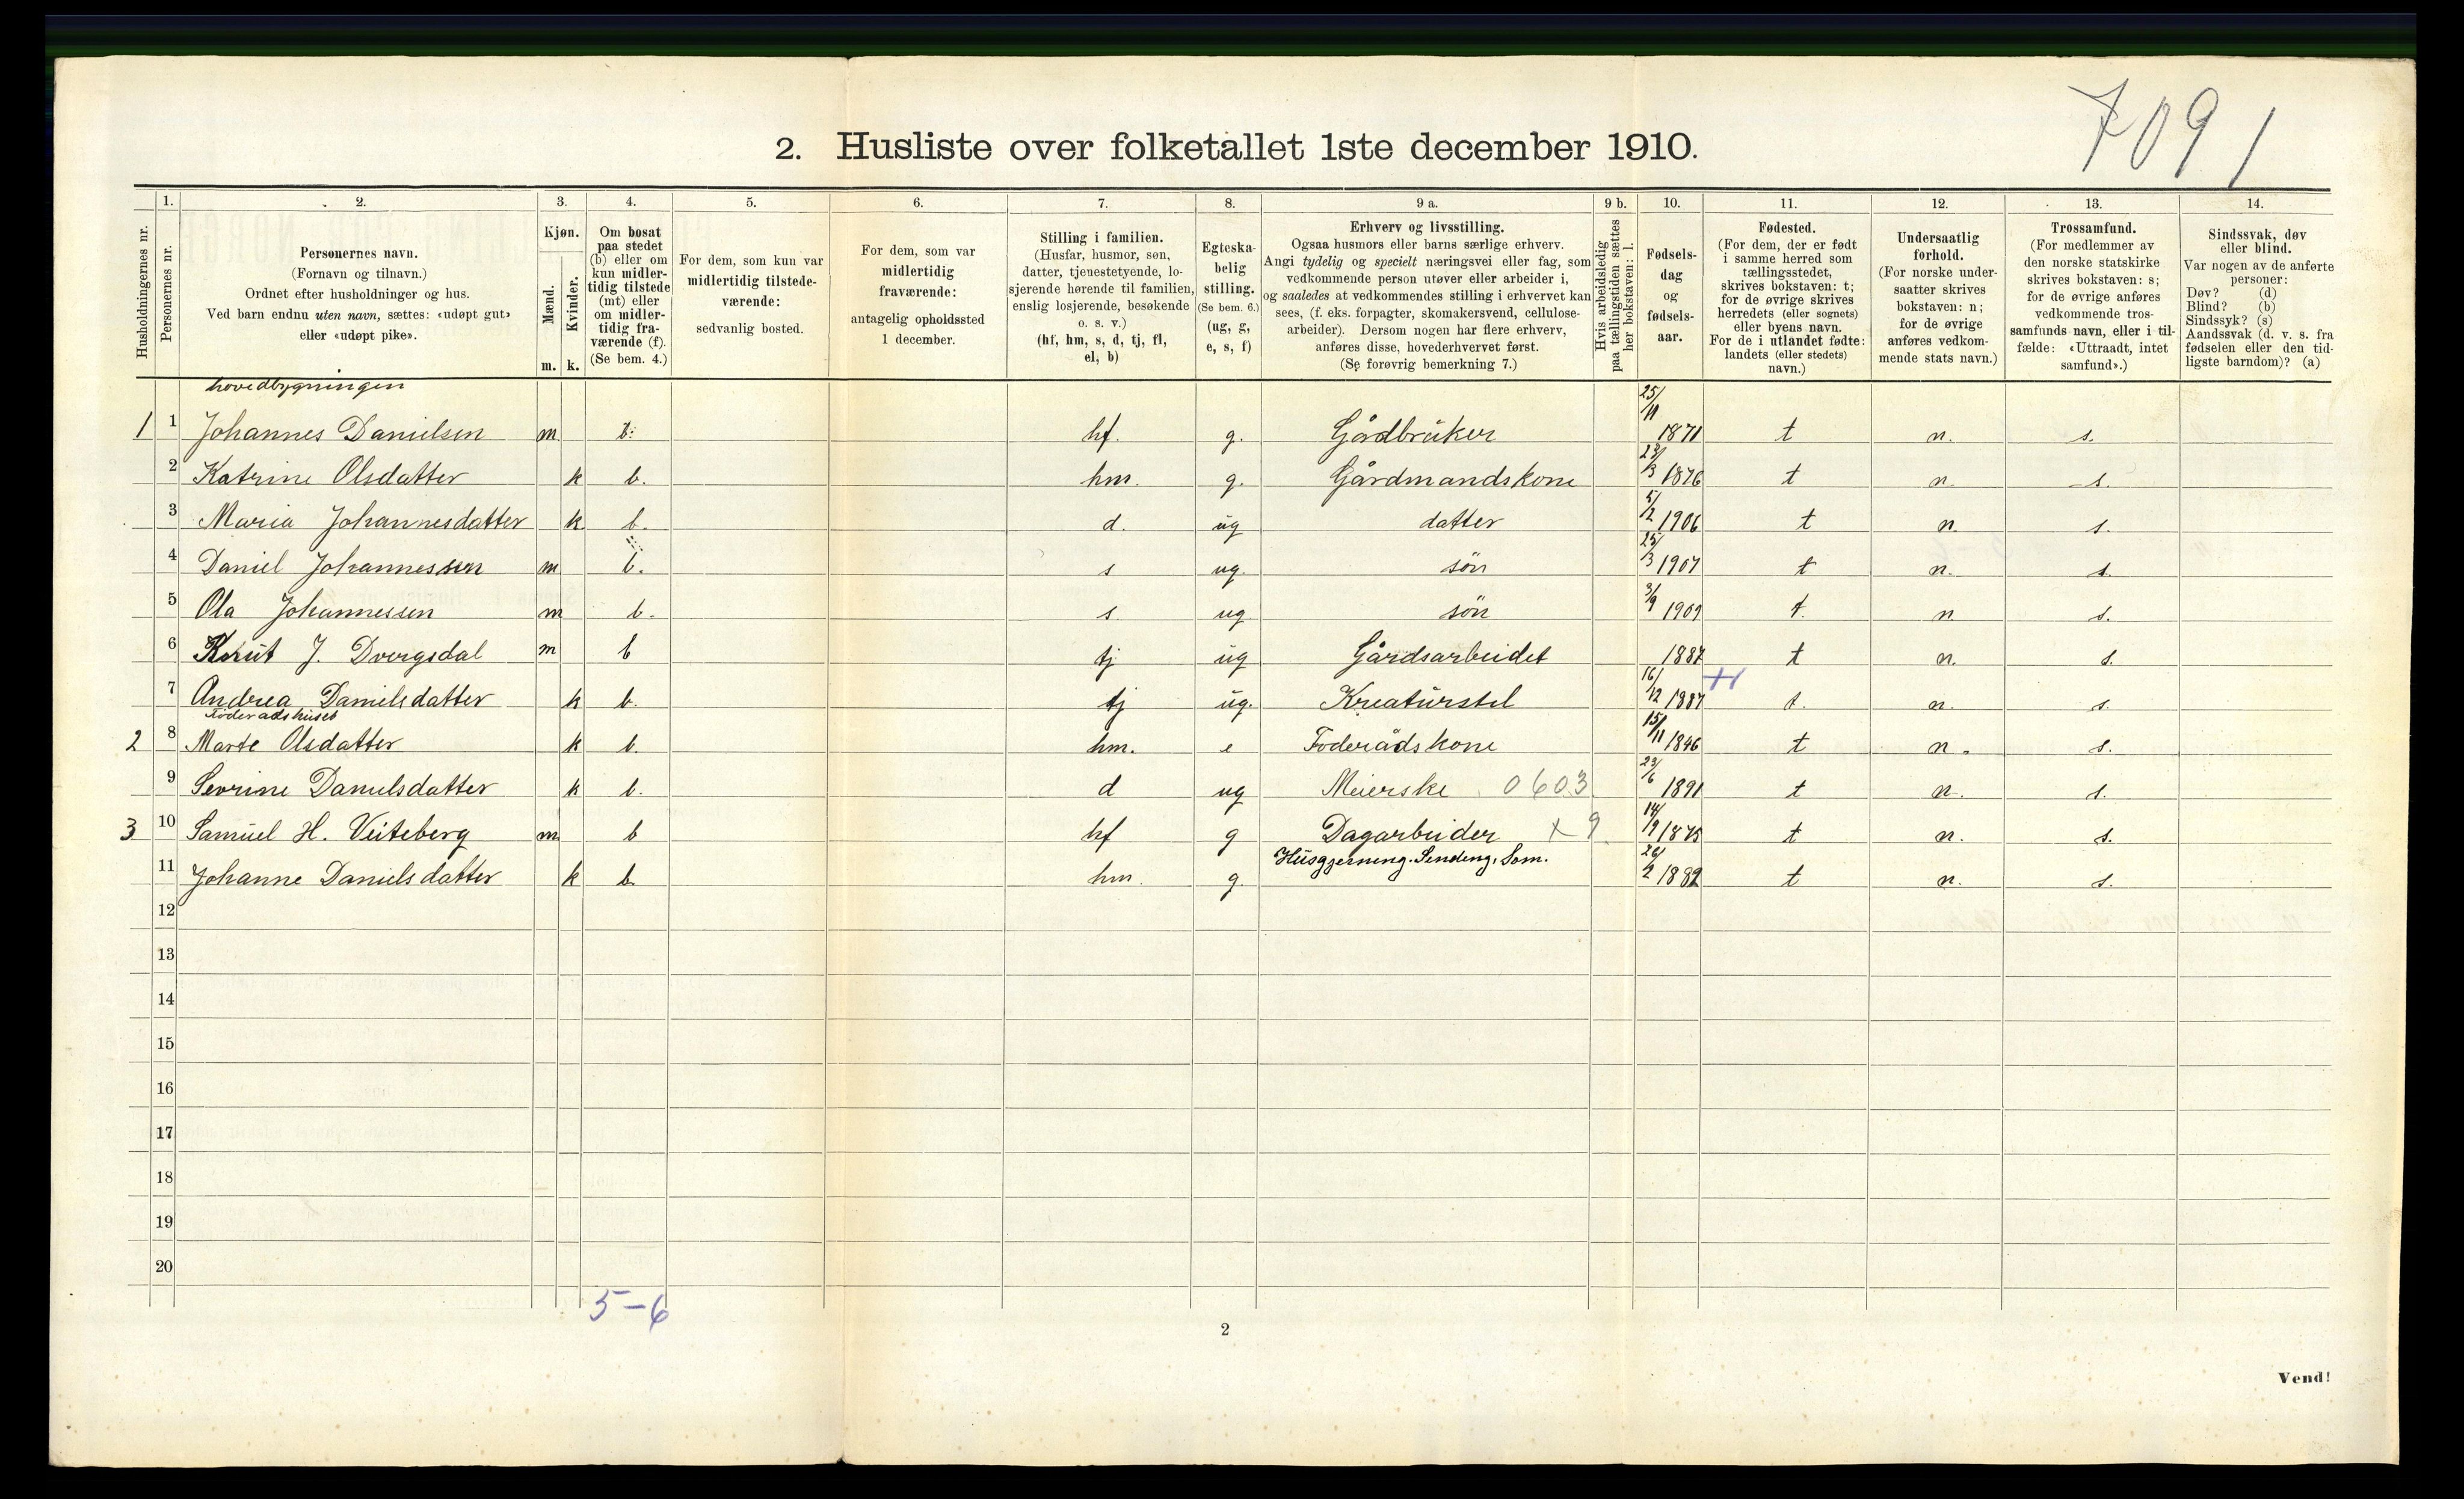 7091
2. Husliste over folketallet 1ste december 1910.
Husholdningernes nr.
1.
Personernes nr.
2.
Personernes navn.
(Fornavn og tilnavn.)
Ordnet efter husholdninger og hus.
Ved barn endnu uten navn, sættes: «udøpt gut»
eller «udøpt pike».
3.
Kjøn.
Mænd.
m.
Kvinder.
k.
4.
Om bosat
paa stedet
(b) eller om
kun midler-
tidig tilstede
(mt) eller
om midler-
tidig fra-
værende (f).
(Se bem. 4.)
5.
For dem, som kun var
midlertidig tilstede-
værende:
sedvanlig bosted.
6.
For dem, som var
midlertidig
fraværende:
antagelig opholdssted
1 december.
7.
Stilling i familien.
(Husfar, husmor, søn,
datter, tjenestetyende, lo-
sjerende hørende til familien,
enslig losjerende, besøkende
o. s. v.)
(hf, hm, s, d, tj, fl,
el, b)
8.
Egteska-
belig
stilling.
(Se bem. 6.)
(ug, g,
e, s, f)
9 a.
Erhverv og livsstilling.
Ogsaa husmors eller barns særlige erhverv.
Angi tydelig og specielt næringsvei eller fag, som
vedkommende person utøver eller arbeider i,
og saaledes at vedkommendes stilling i erhvervet kan
sees, (f. eks. forpagter, skomakersvend, cellulose-
arbeider). Dersom nogen har flere erhverv,
anføres disse, hovederhvervet først.
(Se forøvrig bemerkning 7.)
9 b.
Hvis arbeidsledig
paa tællingstiden sættes
her bokstaven: l.
10.
Fødsels-
dag
og
fødsels-
aar.
11.
Fødested.
(For dem, der er født
i samme herred som
tællingsstedet,
skrives bokstaven: t;
for de øvrige skrives
herredets (eller sognets)
eller byens navn.
For de i utlandet fødte:
landets (eller stedets)
navn.)
12.
Undersaatlig
forhold.
(For norske under-
saatter skrives
bokstaven: n;
for de øvrige
anføres vedkom-
mende stats navn.)
13.
Trossamfund.
(For medlemmer av
den norske statskirke
skrives bokstaven: s;
for de øvrige anføres
vedkommende tros-
samfunds navn, eller i til-
fælde: «Uttraadt, intet
samfund».)
14.
Sindssvak, døv
eller blind.
Var nogen av de anførte
personer:
Døv? (d)
Blind? (b)
Sindssyk? (s)
Aandssvak (d. v. s. fra
fødselen eller den tid-
ligste barndom)? (a)
hovedbygningen
1 1 Johannes Danielsen m b. hf. g. Gårdbrüker 25/11 1871 t n. s.
2 Katrine Olsdatter k b. hm. g. Gårdmandskone 23/3 1876 t n. s.
3 Maria Johannesdatter k b. d. üg datter 5/2 1906 t n. s.
4 Daniel Johannessen m b. s ug. sön 25/3 1907 t n. s.
5 Ola Johannessen m b. s. ug sön 3/9 1909 t. n s.
6 Knüt J. Dvergsdal m b tj üg Gårdsarbeidet 1887 t n. s.
7 Andrea Danielsdatter k b. tj üg. Kreatürstel 16/12 1887 t. n. s.
Föderådshüset
2 8 Marte Olsdatter k b. hm. e Foderådskone 15/11 1846 t n. s.
9 Sevrine Danielsdatter k b. d ug Meierske 0603 23/6 1891 t n. s.
3 10 Samüel H. Veiteberg m b hf g Dagarbeider x 9 14/9 1875 t n. s.
11 Johanne Danielsdatter k b hm. g. Hüsgjerning. Sendeng. Som. 26/2 1882 t n. s.
12
13
14
15
16
17
18
19
20
5-6
2
Vend!